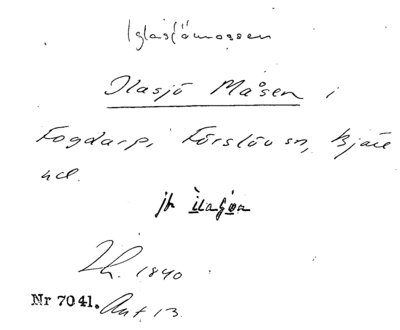 Iglasjömossen
Ilasjö Måsen i
Fogdarp, Förslöv sn, Bjäre
hd.
jb ìlaʃøn
Lh. 1840
Nr 7041. Ant 13.